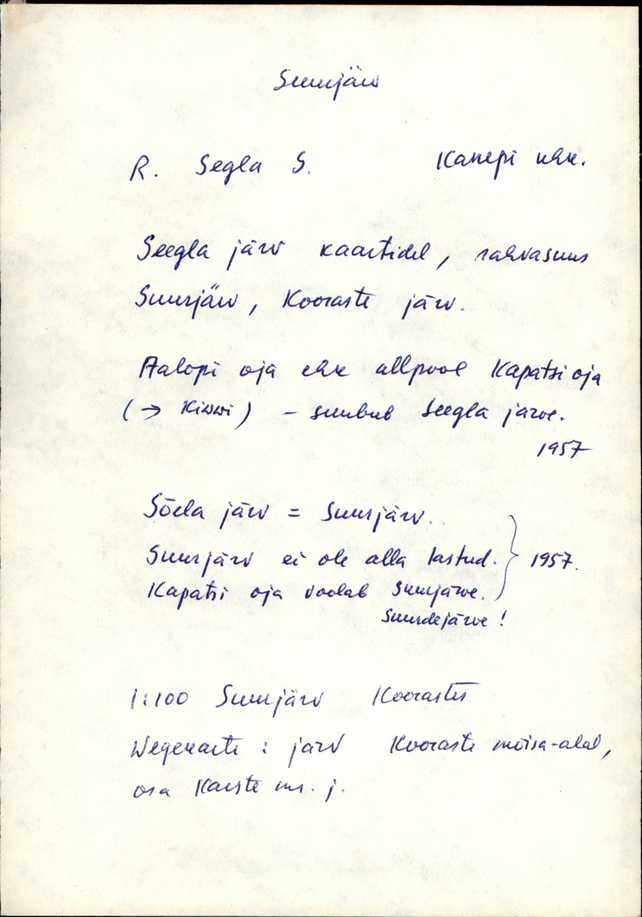 Suurjärv
R. Segla S. Kanepi khk.
Seegla järv kaartidel, rahvasuus
Suurjärv, Kooraste järv.
Aalopi oja ehk allpool Kapatsi oja
(→ Kiwwi) – suubub Seegla järve.
1957
Sõela järv = Suurjärv.
Suurjärv ei ole alla lastud. } 1957.
Kapatsi oja voolab Suurjärve.
Suurdejärve!
1:100 Suurjärv Koorastes
Wegekarte: järv Kooraste mõisa-alal,
osa ms. j.